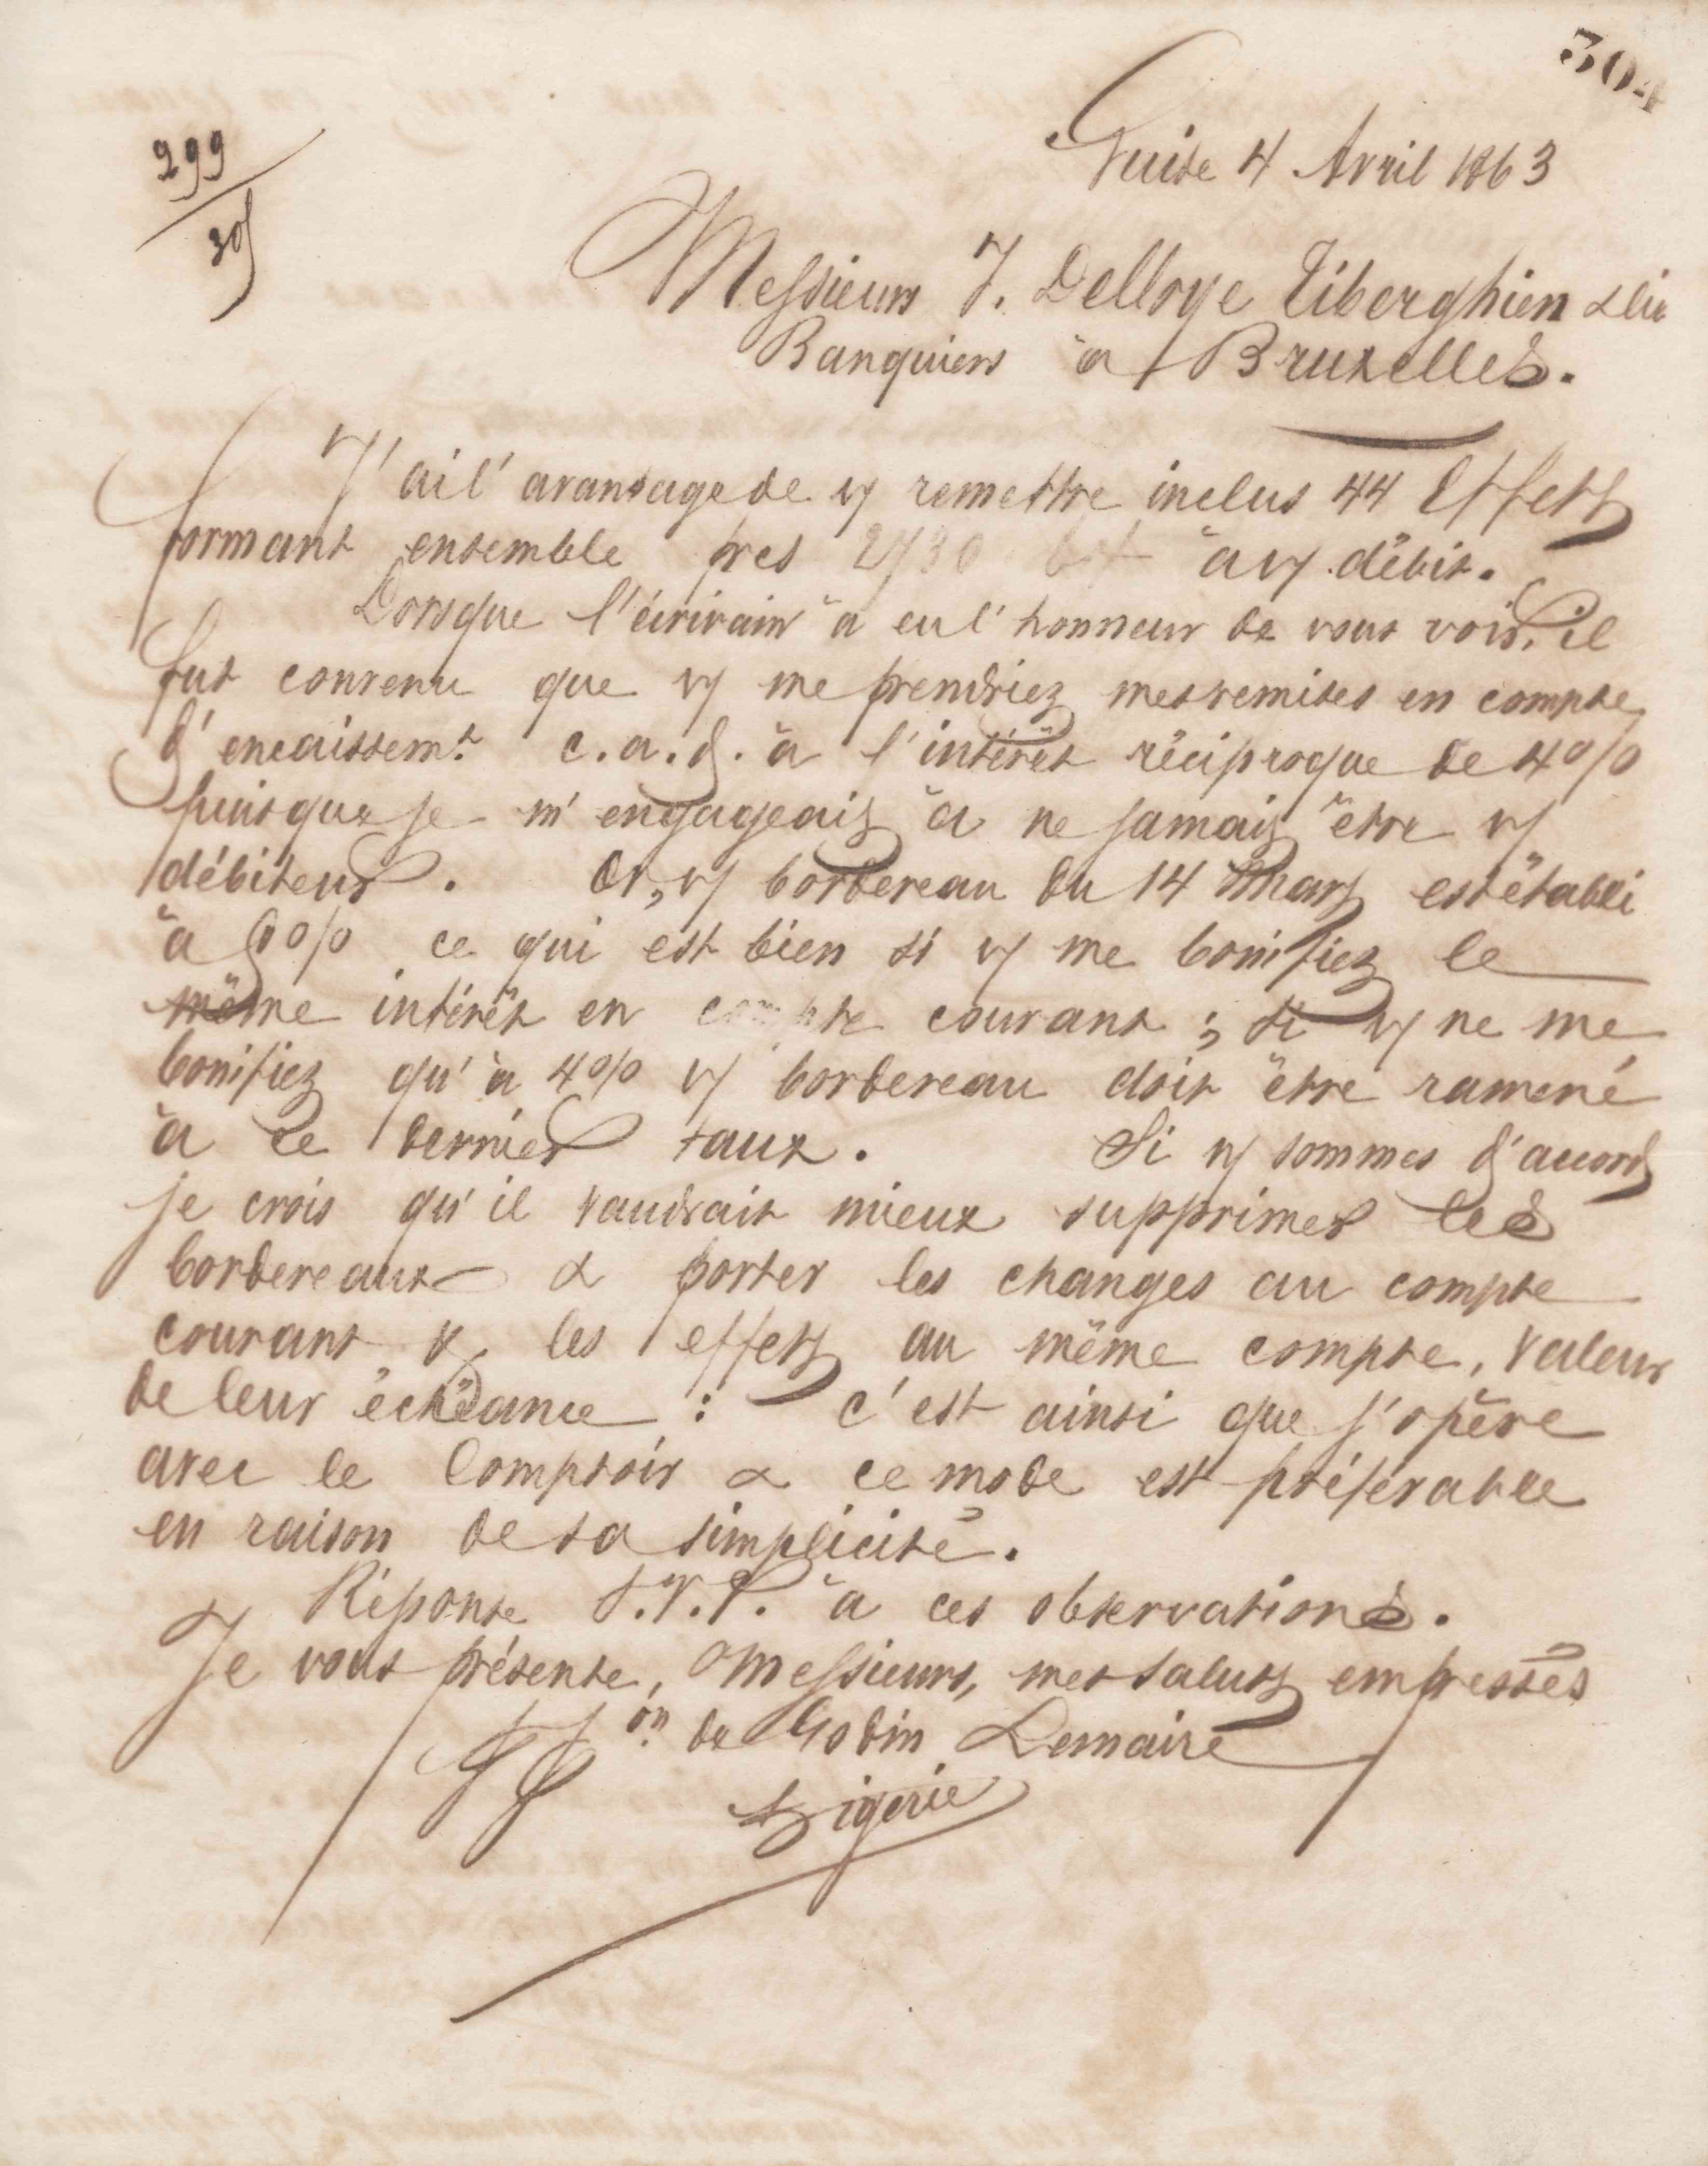 304
299
305
Guise 4 Avril 1863
Messieurs J. Delloye Tiberghien & Cie
Banquiers à Bruxelles.
J'ai l'avantage de vs remettre inclus 44 Effets
formant ensemble frcs à vs débit.
Lorsque l'écrivain a eu l'honneur de vous voir, il
fut convenu que vs me prendriez mes remises en compte
d'encaissemt c.a.d. à l'intérêt réciproque de 4%
puisque je m'engageais à ne jamais être vs
débiteur. Or, vs bordereau du 14 Mars est établi
à 6% ce qui est bien si vs me bonifiez le
même intérêt en compte courant ; si vs ne me
bonifiez qu'à 4% vs bordereau doit être ramené
à ce dernier taux. Si ns sommes d'accord
je crois qu'il vaudrait mieux supprimer les
bordereaux & porter les changes au compte
courant & les effets au même compte, valeur
de leur échéance : c'est ainsi que j'opère
avec le Comptoir & ce mode est préférable
en raison de sa simplicité.
Réponse S.V.P. à ces observations.
Je vous présente, Messieurs, mes saluts empressés
on de Godin Lemaire